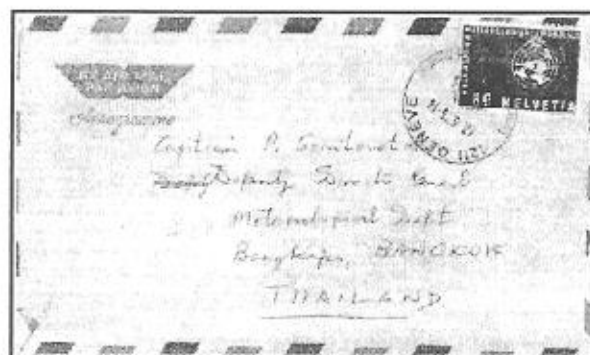 BY AIR MAIL
PAR AVION
Aérogramme
HELVETIA
1211 GENEVE
Captain P.
Deputy Director General
Meteorological Dept
Bangkapi, BANGKOK
THAILAND